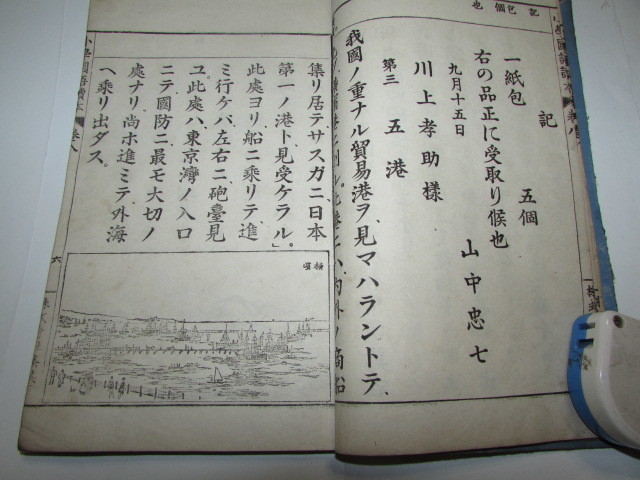 記
一紙包 五個
右の品正に受取り候也
九月十五日 山中忠七
川上孝助樣
第三 五港
我國ノ重ナル貿易港ヲ、見マハラントテ、
内外ノ商船
集リ居テ、サスガニ、日本
第一ノ港ト、見受ケラル」。
此處ヨリ船ニ乘リテ、進
ミ行ケバ、左右ニ、砲臺見
ユ。此處ハ、東京灣ノ入口
ニテ、國防ニ、最モ大切ノ
處ナリ。尚ホ進ミテ、外海
ヘ乘リ出ダス。
橫濱
六